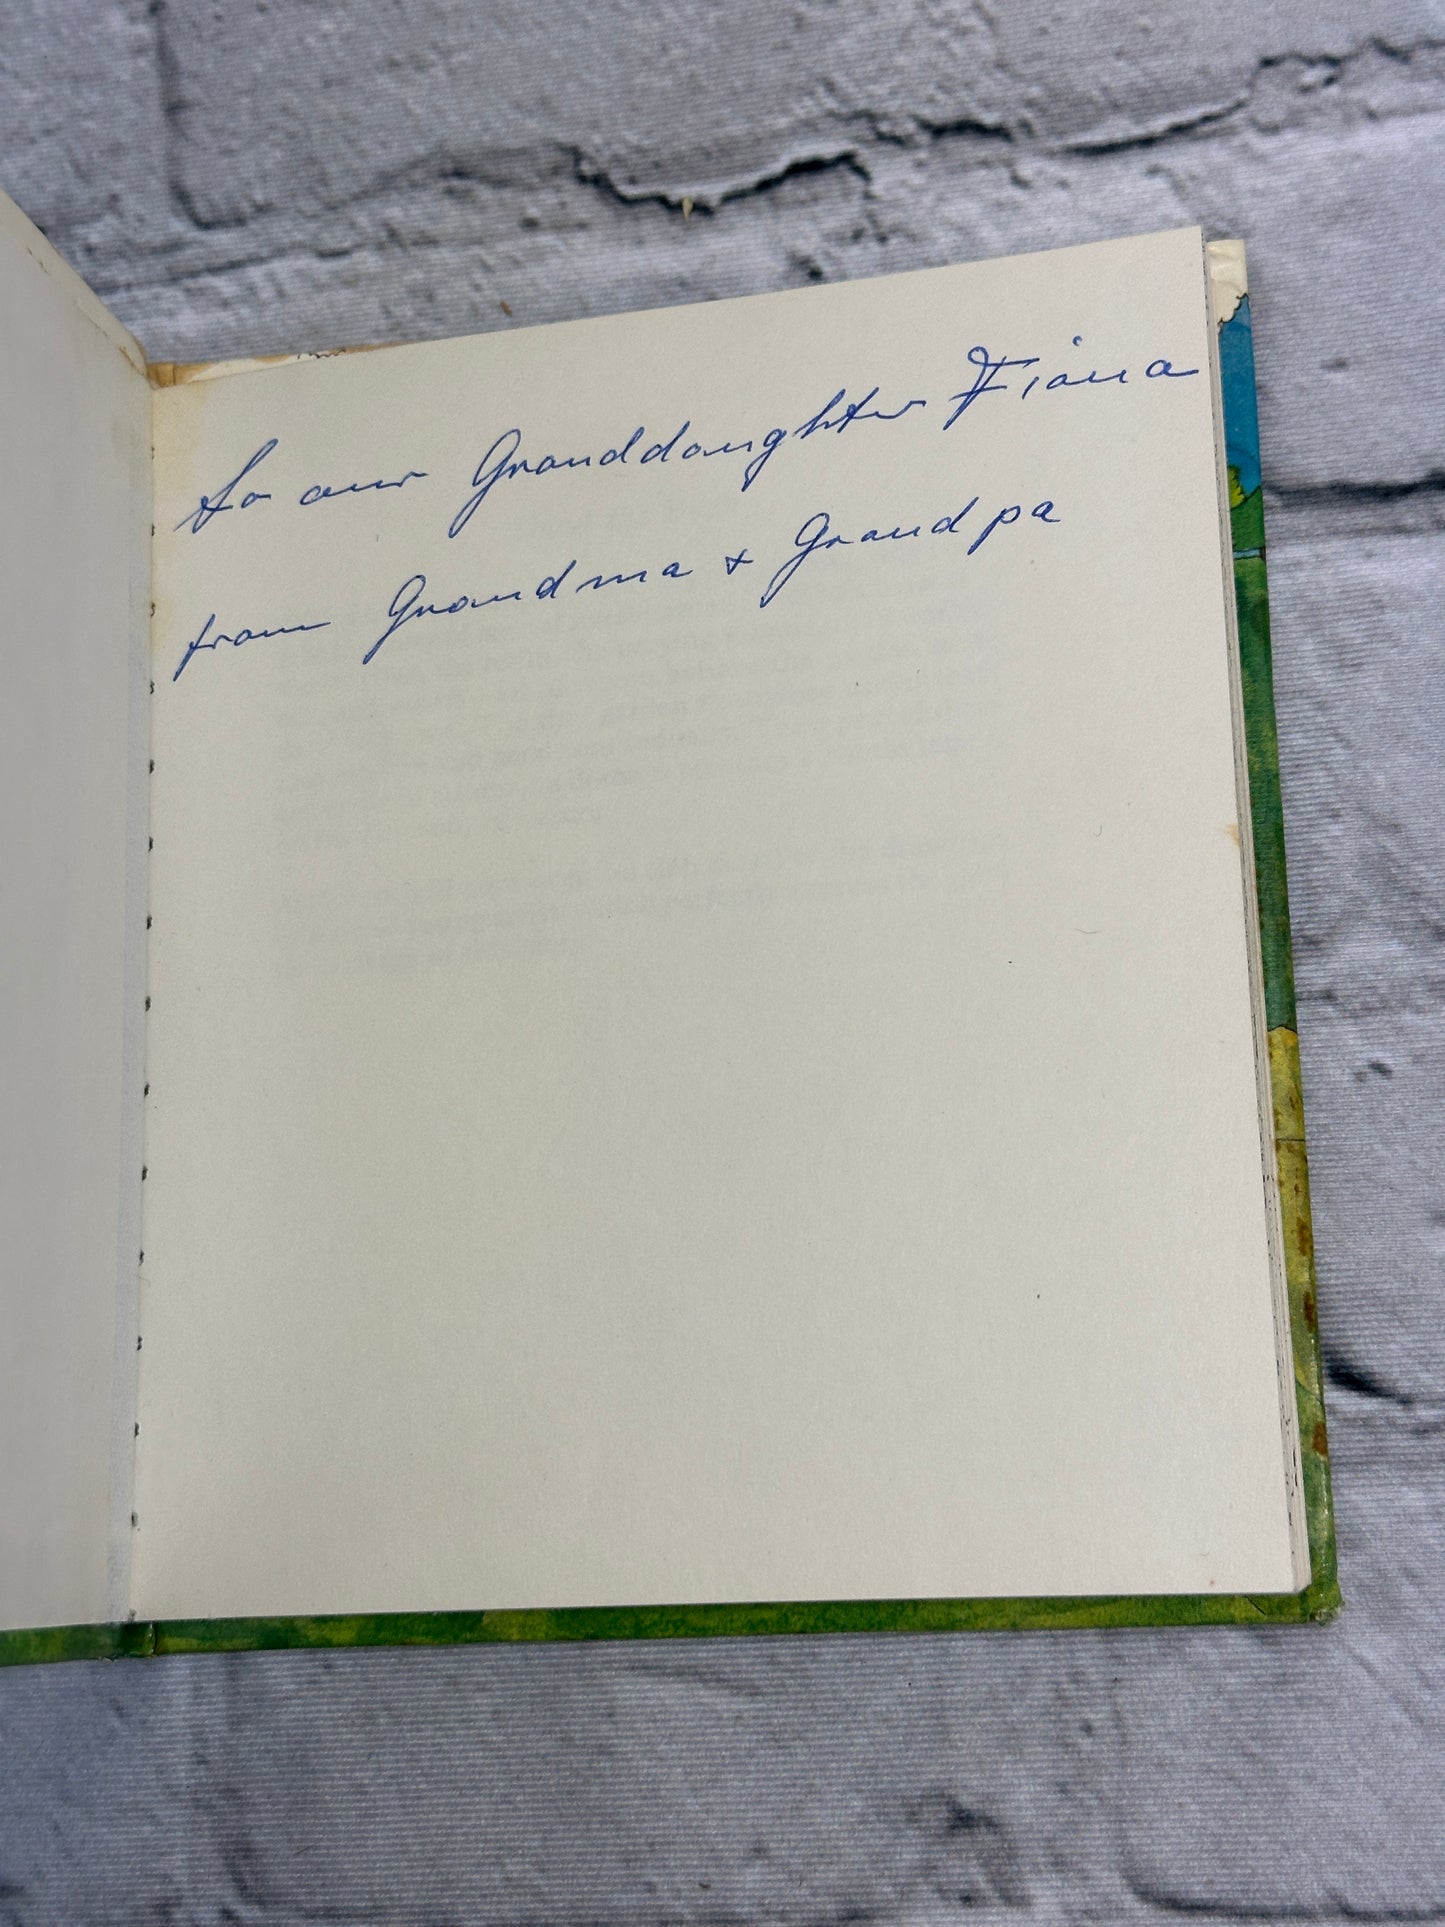 To our Granddaughter Fiona
from Grandma + Grandpa